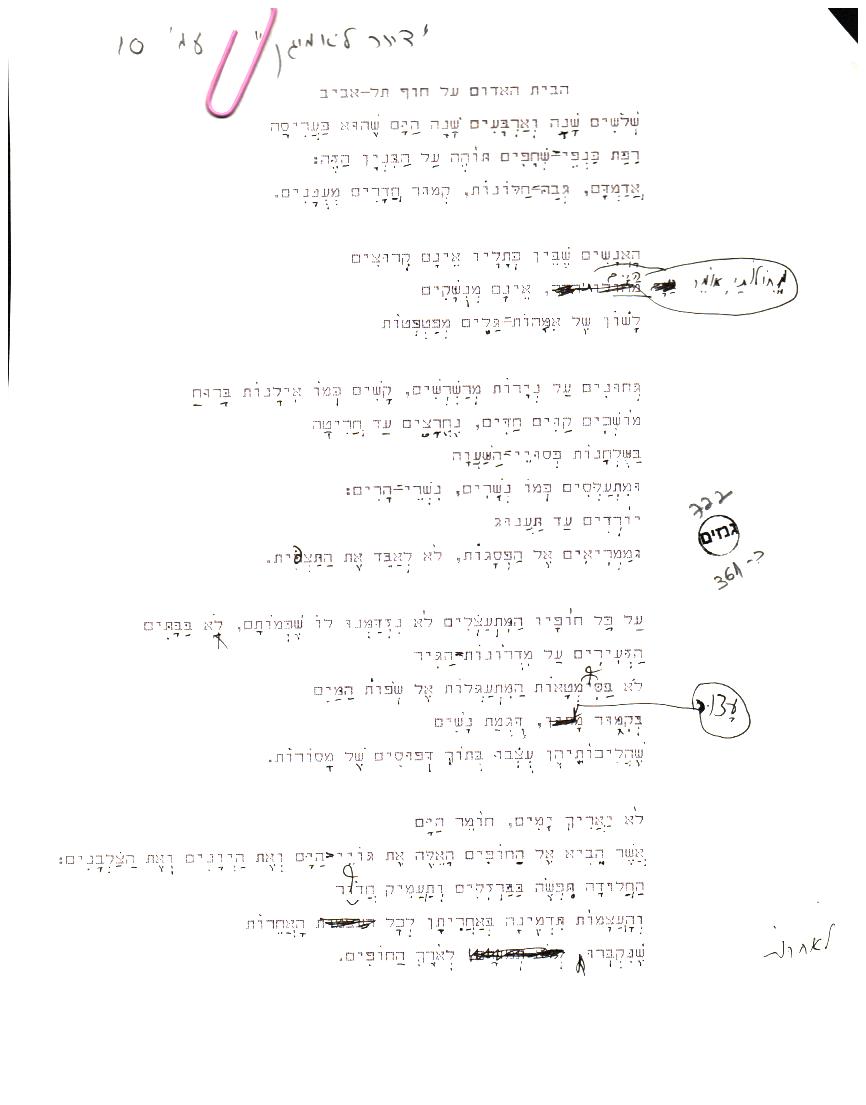 עמ' 10
הבית האדום על חוף תל-אביב
שְׁלֹשִׁים שָׁנָה וְאַרְבָּעִים שָׁנָה הַיָּם שֶׁהוּא בַּעֲרִיסָה
רַפַּת כַּנְפֵי-שְׁחָפִים תּוֹהֶה עַל הַבִּנְיָן הַזֶּה:
אֲדַמְדַּם, גְּבַהּ-חַלּוֹנוֹת, קְמוּר חֲדָרִים מְעֻנָּנִים.
הָאֲנָשִׁים שֶׁבֵּין כְּתָלָיו אֵינָם קְרוּצִים
מְחוֹלוֹתַי אוֹמֵר הַיָּם, אֵינָם מְנֻשָּׁקִים
לָשׁוֹן שֶׁל אִמָּהוֹת-גַּלִּים מְפַטְפְּטוֹת
גְּחוּנִים עַל נְיָרוֹת מְרַשְׁרְשִׁים, קָשִׁים כְּמוֹ אִילָנוֹת בָּרוּחַ
מוֹשְׁכִים קַוִּים חַדִּים, נֶחֱרָצִים עַד חֲרִיטָה
בַּשֻּׁלְחָנוֹת פְּסוּיֵי-הַשַּׁעֲוָה
וּמִתְעַלְּסִים כְּמוֹ נְשָׁרִים, נִשְׁרֵי-הָרִים:
יוֹרְדִים עַד תַּעֲנוּג
וּמַמְרִיאִים אֶל הַפְּסָגוֹת, לֹא לְאַבֵּד אֶת הַתַּצְפִּית.
עַל כָּל חוֹפָיו הַמִּתְעַצְּלִים לֹא נִזְדַּמְּנוּ לוֹ שֶׁכְּמוֹתָם, לֹא בַּבָּתִּים
הַזְּעִירִים עַל מִדְרוֹנוֹת-הַגִּיר
לֹא בַּסִּמְטָאוֹת הַמִּתְעַגְּלוֹת אֶל שְׂפוֹת הַמַּיִם
בְּקִמּוּר עָדוּן, דֻּגְמַת נָשִׁים
שֶׁהֲלִיכוֹתֵיהֶן עֻצְּבוּ בְּתוֹךְ דְּפוּסִים שֶׁל מָסוֹרוֹת.
לֹא יַאֲרִיךְ יָמִים, חוֹמֵר הַיָּם
אֲשֶׁר הֵבִיא אֶל הַחוֹפִים הָאֵלֶּה אֶת גּוֹיֵי-הַיָּם וְאֶת הַיְּוָנִים וְאֶת הַצַּלְבָּנִים:
הַחֲלוּדָה תָּפְשָׂה בַּבַּרְזִלִּים וְתַעֲמִיק חֲדוֹר
וְהָעֲצָמוֹת תִּדְמֶינָה בְּאַחֲרִיתָן לְכָל הָאֲחֵרוֹת
שֶׁנִּקְבְּרוּ לְאֹרֶךְ הַחוֹפִים.
722
גנזים
כ-361